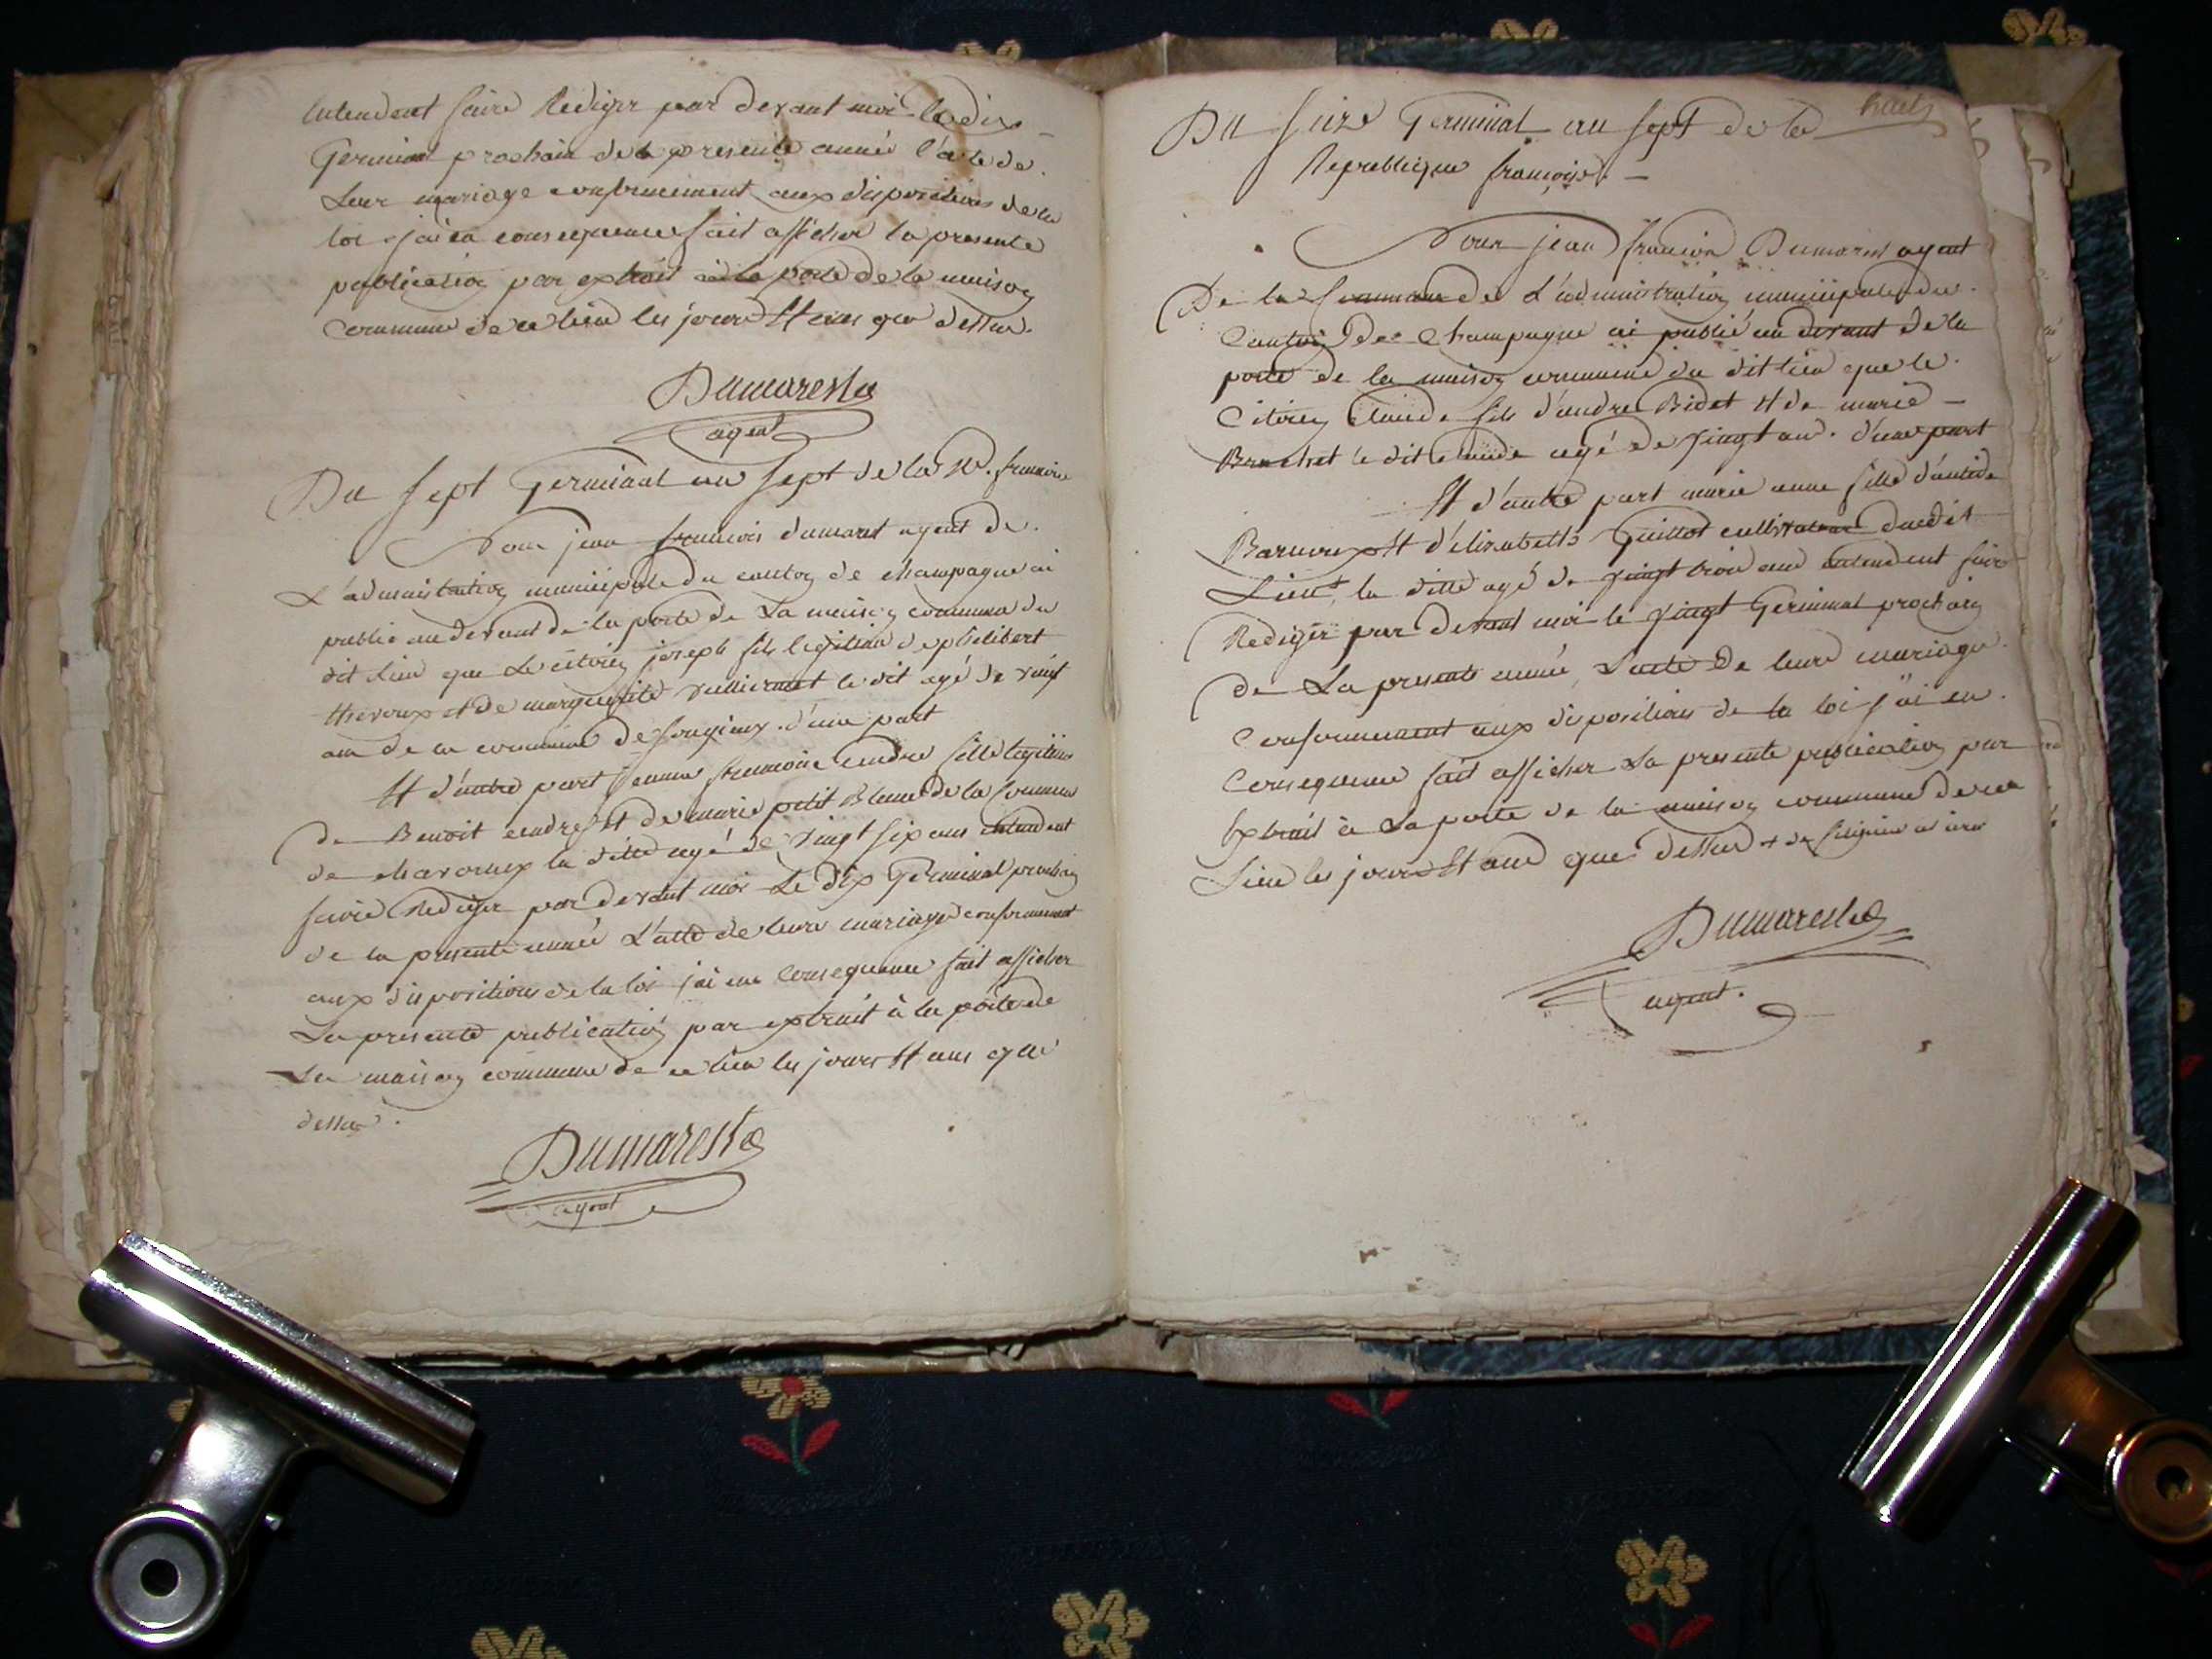 intendent faire Rediger par devant moi le dix
Germinal prochain de la presente année l'acte de
Leur mariage conformement aux dispositions de la
loi j'ai en consequence fait afficher la presente
publication par extrait à la porte de la maison
Commune de ce lieu les jours Et ans que dessus.
Dumarest
agent
Du sept Germinal an sept de la R. francoise
Nous jean francois dumarest agent de
L'administration municipale du canton de champagne ai
publié au devant de la porte de La maison commune du
dit lieu que Le citoien joseph fils legitime de philibert
thevoux et de marguerite vulliermet le dit agé de vingt
ans de la commune de songieux d'une part
Et d'autre part francoise endre fille legitime
de Benoit endre Et de marie petit Blanc de la Commune
de chavornex la ditte agé de vingt six ans intendent
faire Rediger par devant moi Le dix Germinal prochain
de la presente année L'acte de leurs mariage conformement
aux dispositions de la loi j'ai en Consequence fait afficher
La presente publication par extrait à la porte de
La maison commune de ce lieu les jours Et ans que
dessus.
Dumarest
agent
huit
Du seize Germinal an sept de la
Republique francoise
Nous jean francois Dumarest agent
De la Commune de L'administration municipale du
Canton De Champagne ai publié au devant de la
porte de la maison commune du dit lieu que le
Citoien Claude fils d'andre Bidet Et de marie
Brachet le dit claude agé de vingt ans d'une part
Et d'autre part marie anne fille d'antide
Barnoux Et d'elisabeth Guillot cultivateur dudit
Lieu, la ditte agé de vingt trois ans intendent faire
Rediger par devant moi le vingt Germinal prochain
de La presente année, L'acte De leurs mariage
Conformement aux dispositions de la loi j'ai en
Consequence fait afficher La presente publication par
Extrait à La porte de la maison commune de ce
Lieu les jours Et ans que dessus
Dumarest
agent.